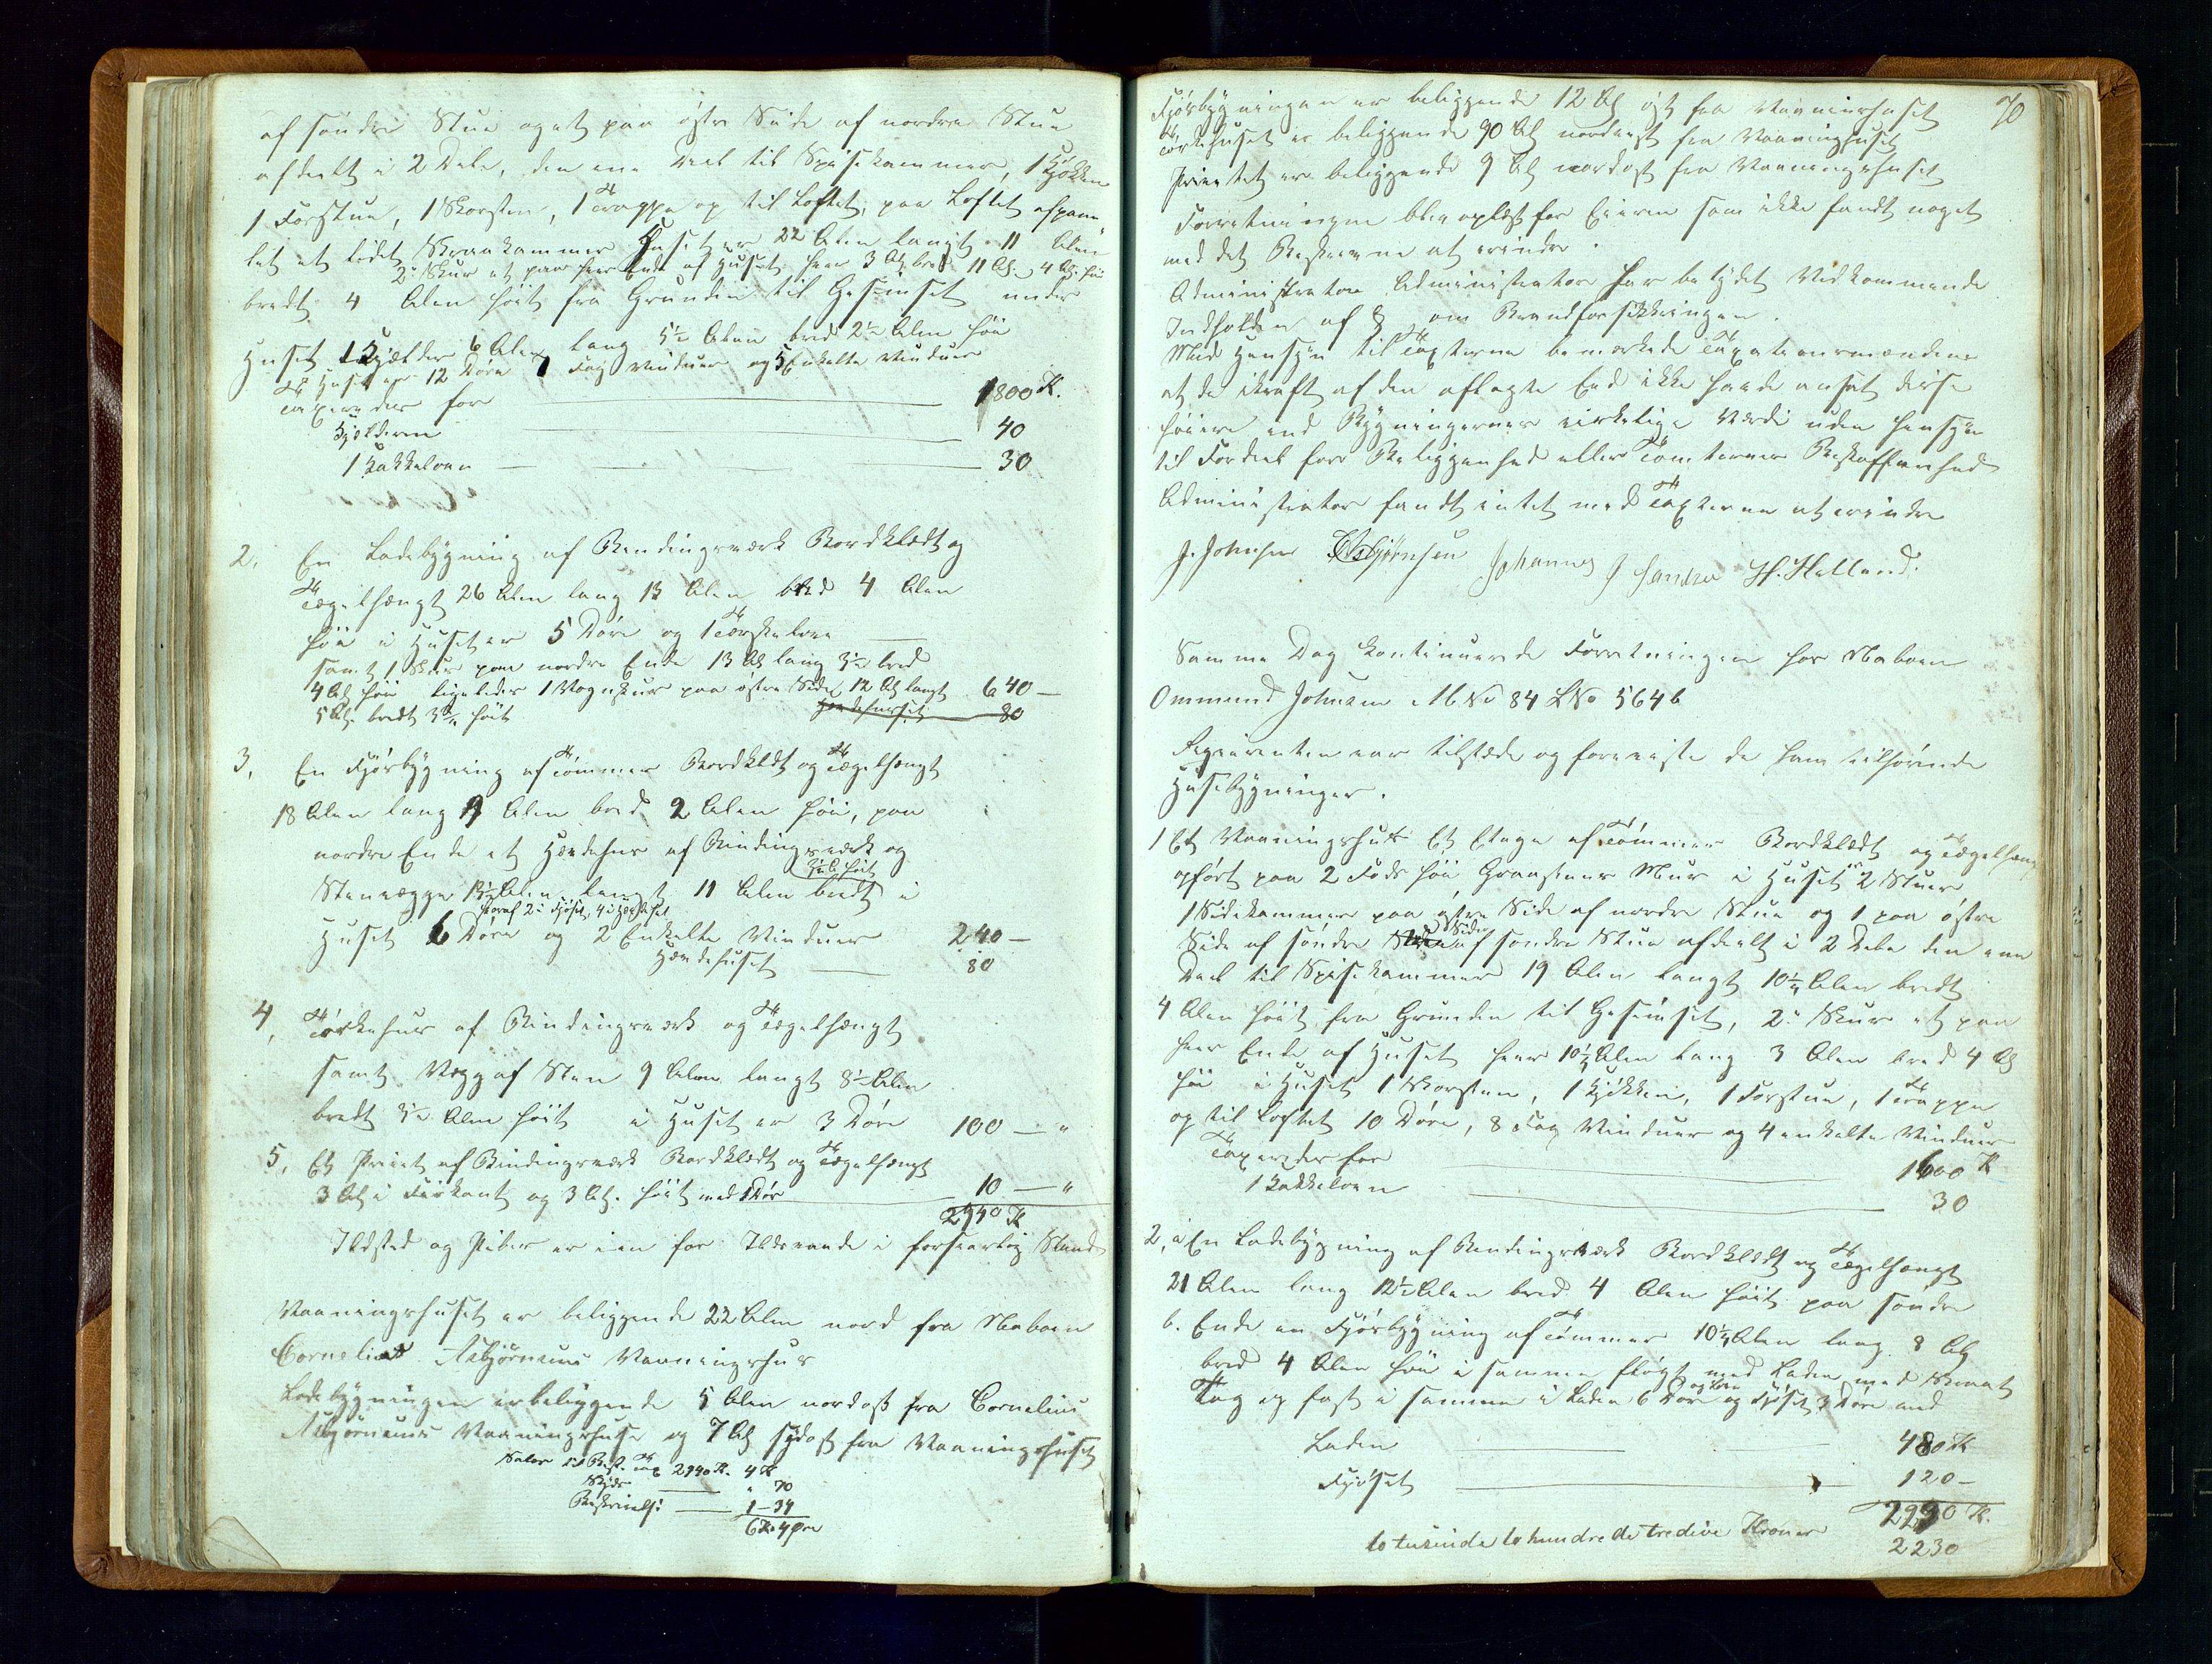 af søndre Stue og et paa østre Side af nordre Stue
afdeelt i 2 Dele, den ene Deel til Spisekammer, 1 Kjøkken
1 Forstue, 1 Skorsten, 1 Trappe op til Loftet, paa Loftet afpane
let et lidet Skraakammer Huset er 22 Alen langt 11 Alen
2de Skur et paa hver Ende af Huset hver 3 Al bred 11 Al. 4 Al. høi
bredt 4 Alen høit fra Grunden til Gesimset under
Huset 1 Kjelder 6 Alen lang 5½ Alen bred 2½ Alen høi
I Huset er 12 Døre 7 Fag Vinduer og 5 Enkelte Vinduer
Taxeredes for 1800 K.
Kjelderen 40
1 Kakkelovn 30
2. En Ladebygning af Bindingsværk Bordklædt og
Tegelhængt 26 Alen lang 13 Alen bred 4 Alen
høi i Huset er 5 Døre og 1 Tørskelove
samt 1 Skur paa nordre Ende 13 Al lang 3½ bred
4 Al høi ligeledes 1 Vognskur paa østre Side 12 Al langt 640 —
5 Al. bredt 3½ høit Hondehuset 80
3. En Fjøsbygning af Tømmer Bordkldt og Tegelhængt
18 Alen lang 9 Alen bred 2 Alen høi, paa
nordre Ende et Høndehus af Bindingsværk og
3½ Al høit
Stenvægge 13½ Alen langt 11 Alen bredt i
hvoraf 2 i Fjøset, 4 i Høndehuset
Huset 6 Døre og 2 Enkelte Vinduer 240 —
Høndehuset 80
4. Tørkehus af Bindingsværk og Tegelhængt
samt Væg af Sten 9 Alen langt 8½ Alen
bredt 3½ Alen høit i Huset er 3 Døre 100 — "
5. Et Privet af Bindingsværk Bordklædt og Tegelhængt
3 Al i Firkant og 3 Al. høit med 1 Dør 10 — "
2940 K
Ildsted og Piber er i en for Ildsvaade i forsvarlig Stand
Vaaningshuset er beliggende 22 Alen nord fra Naboen
Cornelius Asbjørnsens Vaaningshus
Ladebygningen er beliggende 5 Alen nordost fra Cornelius
Asbjørnsens Vaaningshus og 7 Al sydost fra Vaaningshuset
Salær til Best. Tax 2940 K. 4 K
Skyds " 70
Beskrivelse 1 – 34
6 K. 4 Øre
70
Fjøsbygningen er beliggende 12 Al øst fra Vaaningshuset
Tørkehuset er beliggende 90 Al nordvest fra Vaaninghuset
Privetet er beliggende 9 Al nordost fra Vaaningshuset
Forretningen blev oplæst for Eieren som ikke fandt noget
med det Beskrevne at erindre.
Administrator Administrator har betydet Vedkommende
Indholden af § om Brandforsikkringen.
Med Hensyn til Taxterne bemærkede Taxationsmændene
at de ikraft af den aflagte Eed ikke havde ansat disse
høiere end Bygningernes virkelige Værdi uden Hensyn
til Fordeel for Beliggenhed eller Tomternes Beskaffenhed
Administrator fandt intet med Taxterne at erindre
J. Johnsen C Asbjørnsen Johannes J Sandve H. Helland.
Samme Dag kontinuerede Forretningen hos Naboen
Ommund Johnsen MNo 84 LNo 564 b
Reqvirenten var tilstede og foreviste de ham tilhørende
Husebygninger.
1 Et Vaaningshus Et Etage af Tømmer Bordklædt og Tegelhængt
opført paa 2 Fods høi Graasteens Mur i Huset er 2 Stuer
1 Sidekammer paa østre Side af nordre Stue og 1 paa østre
Side af søndre Side af søndre Stue afdeelt i 2 Dele den ene
Deel til Spisekammer 19 Alen langt 10½ Alen bredt
4 Alen høit fra Grunden til Gesimset, 2de Skur et paa
hver Ende af Huset hver 10½ Alen lang 3 Alen bred 4 Al
høi i Huset 1 Skorsten, 1 Kjøkken, 1 Forstue, 1 Trappe
op til Loftet 10 Døre, 8 Fag Vinduer og 4 enkelte Vinduer
Taxeredes for 1600 K
1 Kakkelovn 30
2, a En Ladebygning af Bindingsværk Bordklædt og Tegelhængt
21 Alen lang 12½ Alen bred 4 Alen høit paa søndre
b. Ende en Fjøsbygning af Tømmer 10½ Alen lang 8 Al
bred 4 Alen høi i samme Fløgt med Laden med
Tag og fast i samme i Laden 6 Døre og Love og Fjøset 3 Døre med
Laden 480 K
Fjøset 120 —
2230 K.
to tusinde to hundrede tredive Kroner 2230